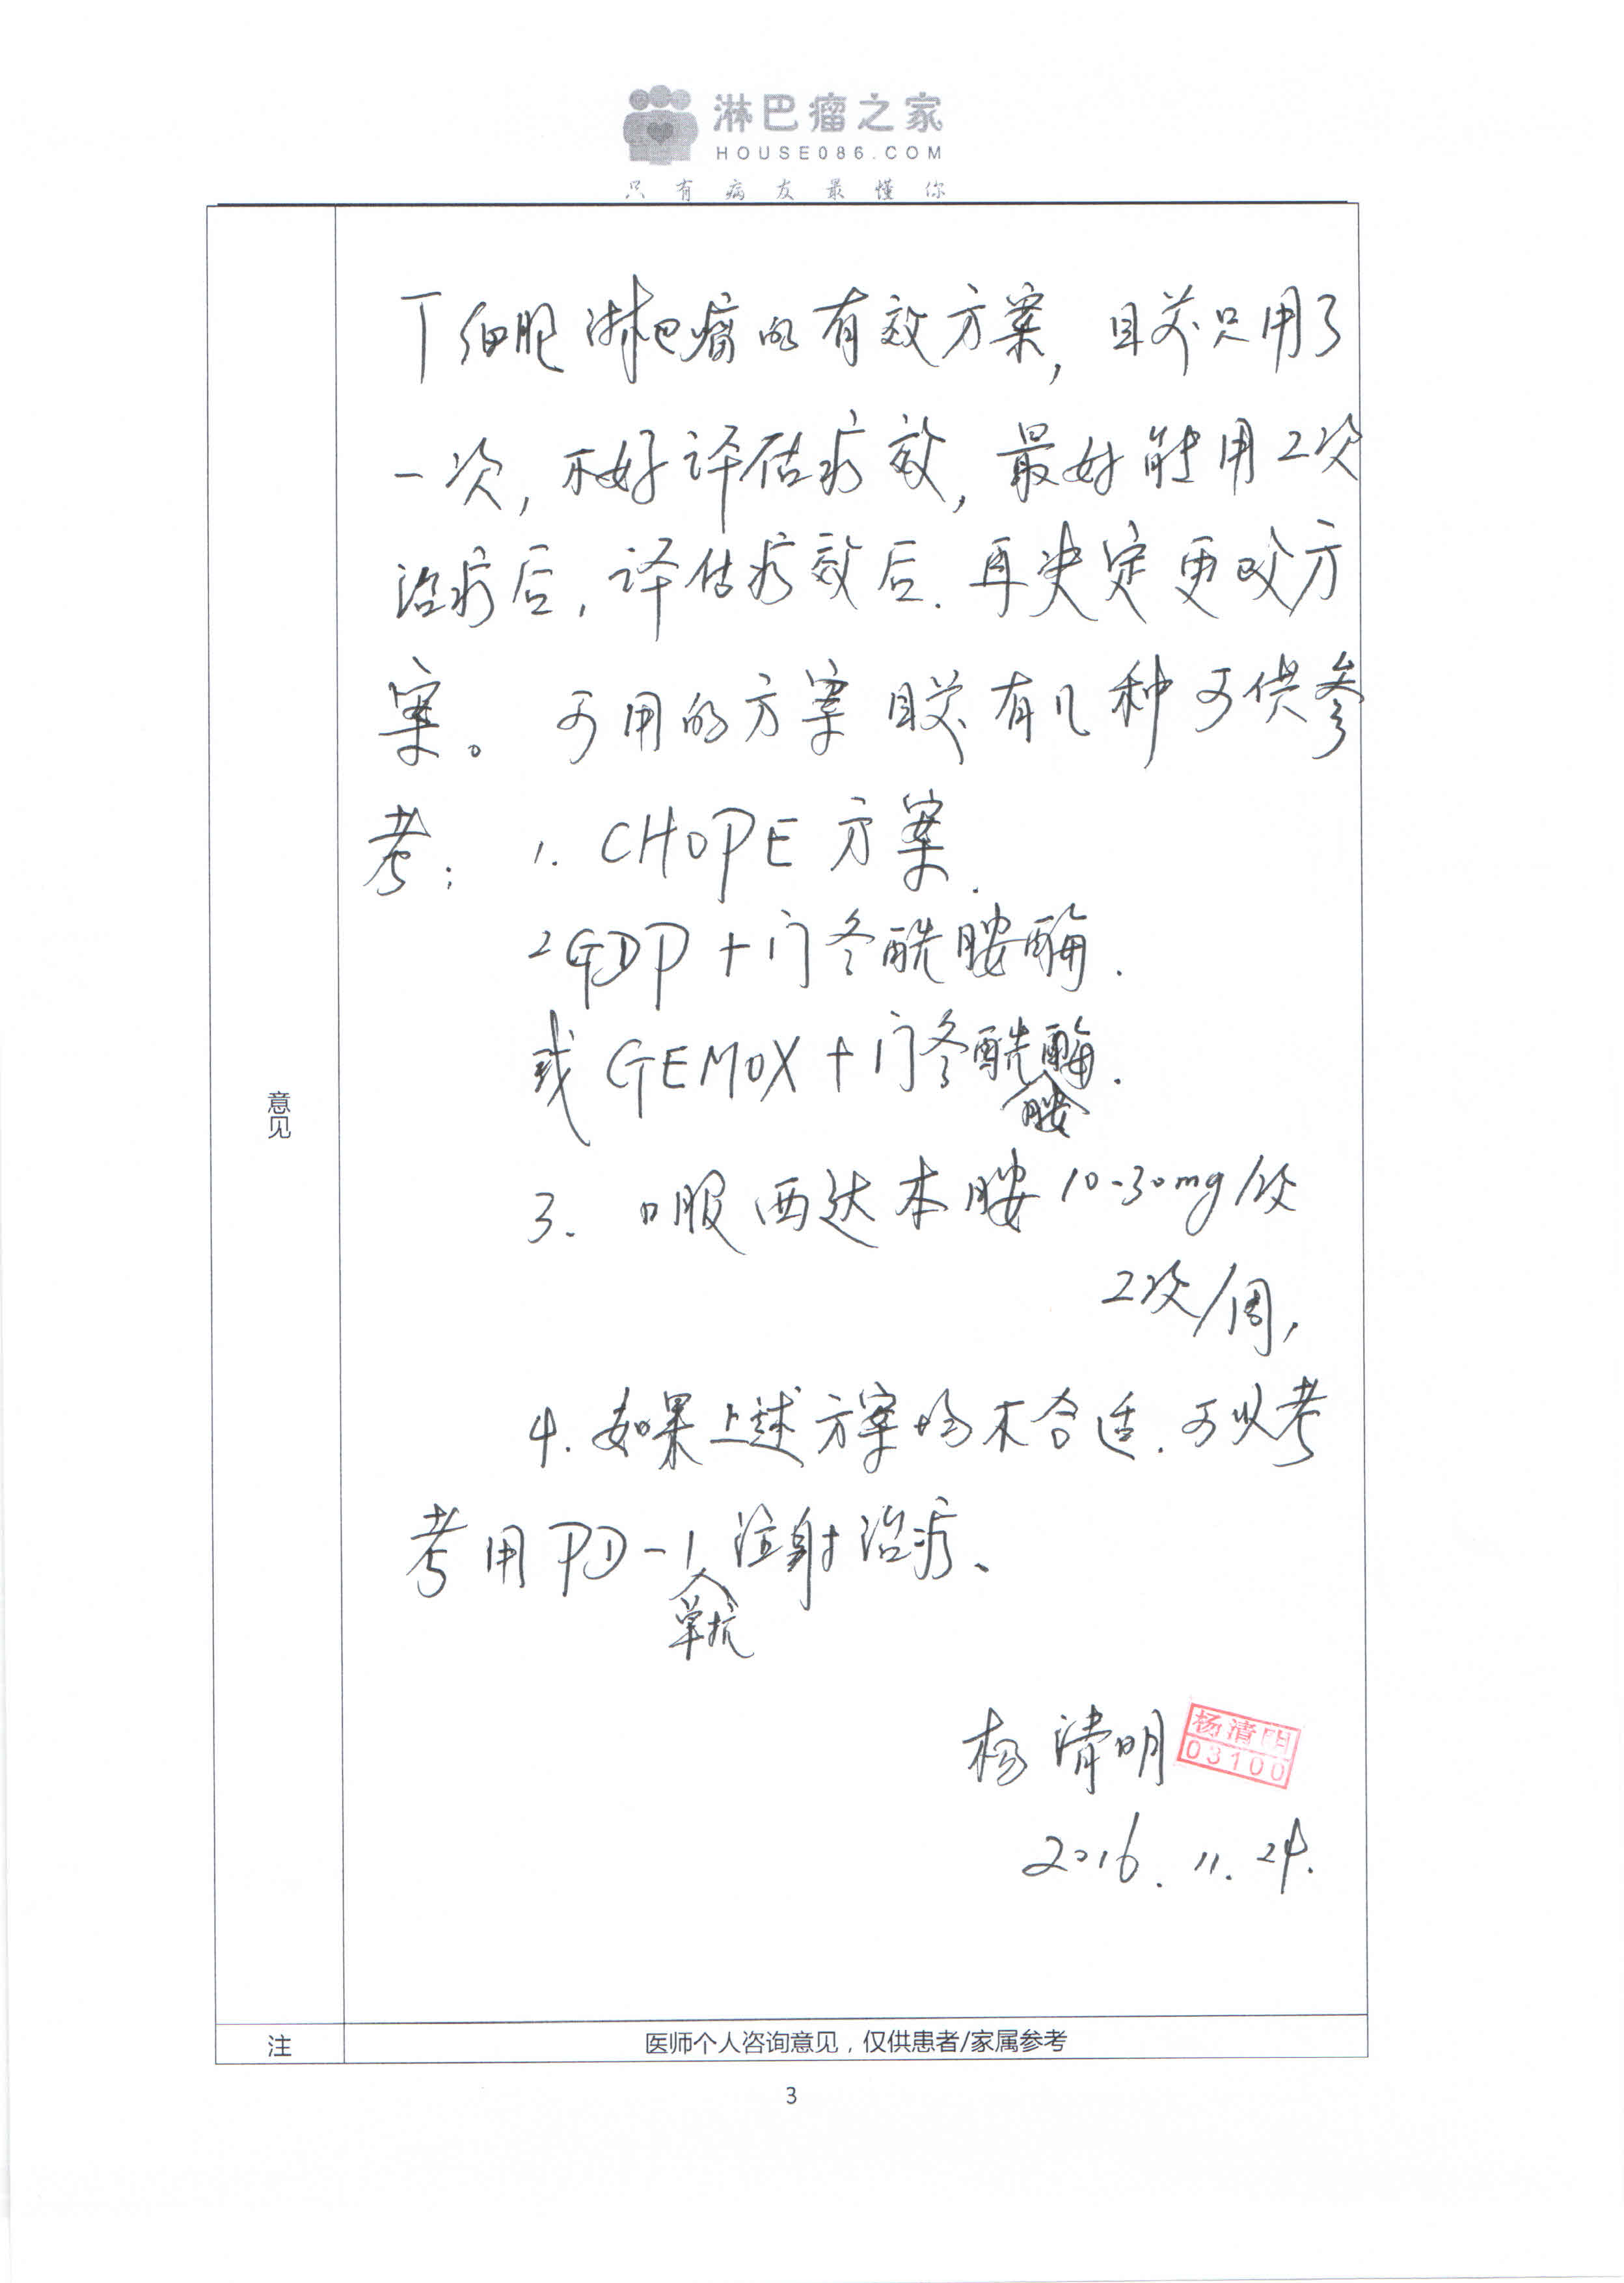 淋巴瘤之家
HOUSE086.COM
只有病友最懂你
T细胞淋巴瘤的有效方案，目前只用了
一次，不好评估疗效，最好能用2次
治疗后，评估疗效后．再决定更改方
案。可用的方案目前有几种可供参
考：1. CHOPE方案．
2 GDP＋门冬酰胺酶．
或 GEMOX＋门冬酰胺酶．
3. 口服西达本胺 10-30mg/次
2次/周，
4. 如果上述方案均不合适．可以考
考用PD-1单抗注射治疗、
杨清明
杨清明
03100
2016.11.24.
意见
注
医师个人咨询意见，仅供患者/家属参考
3